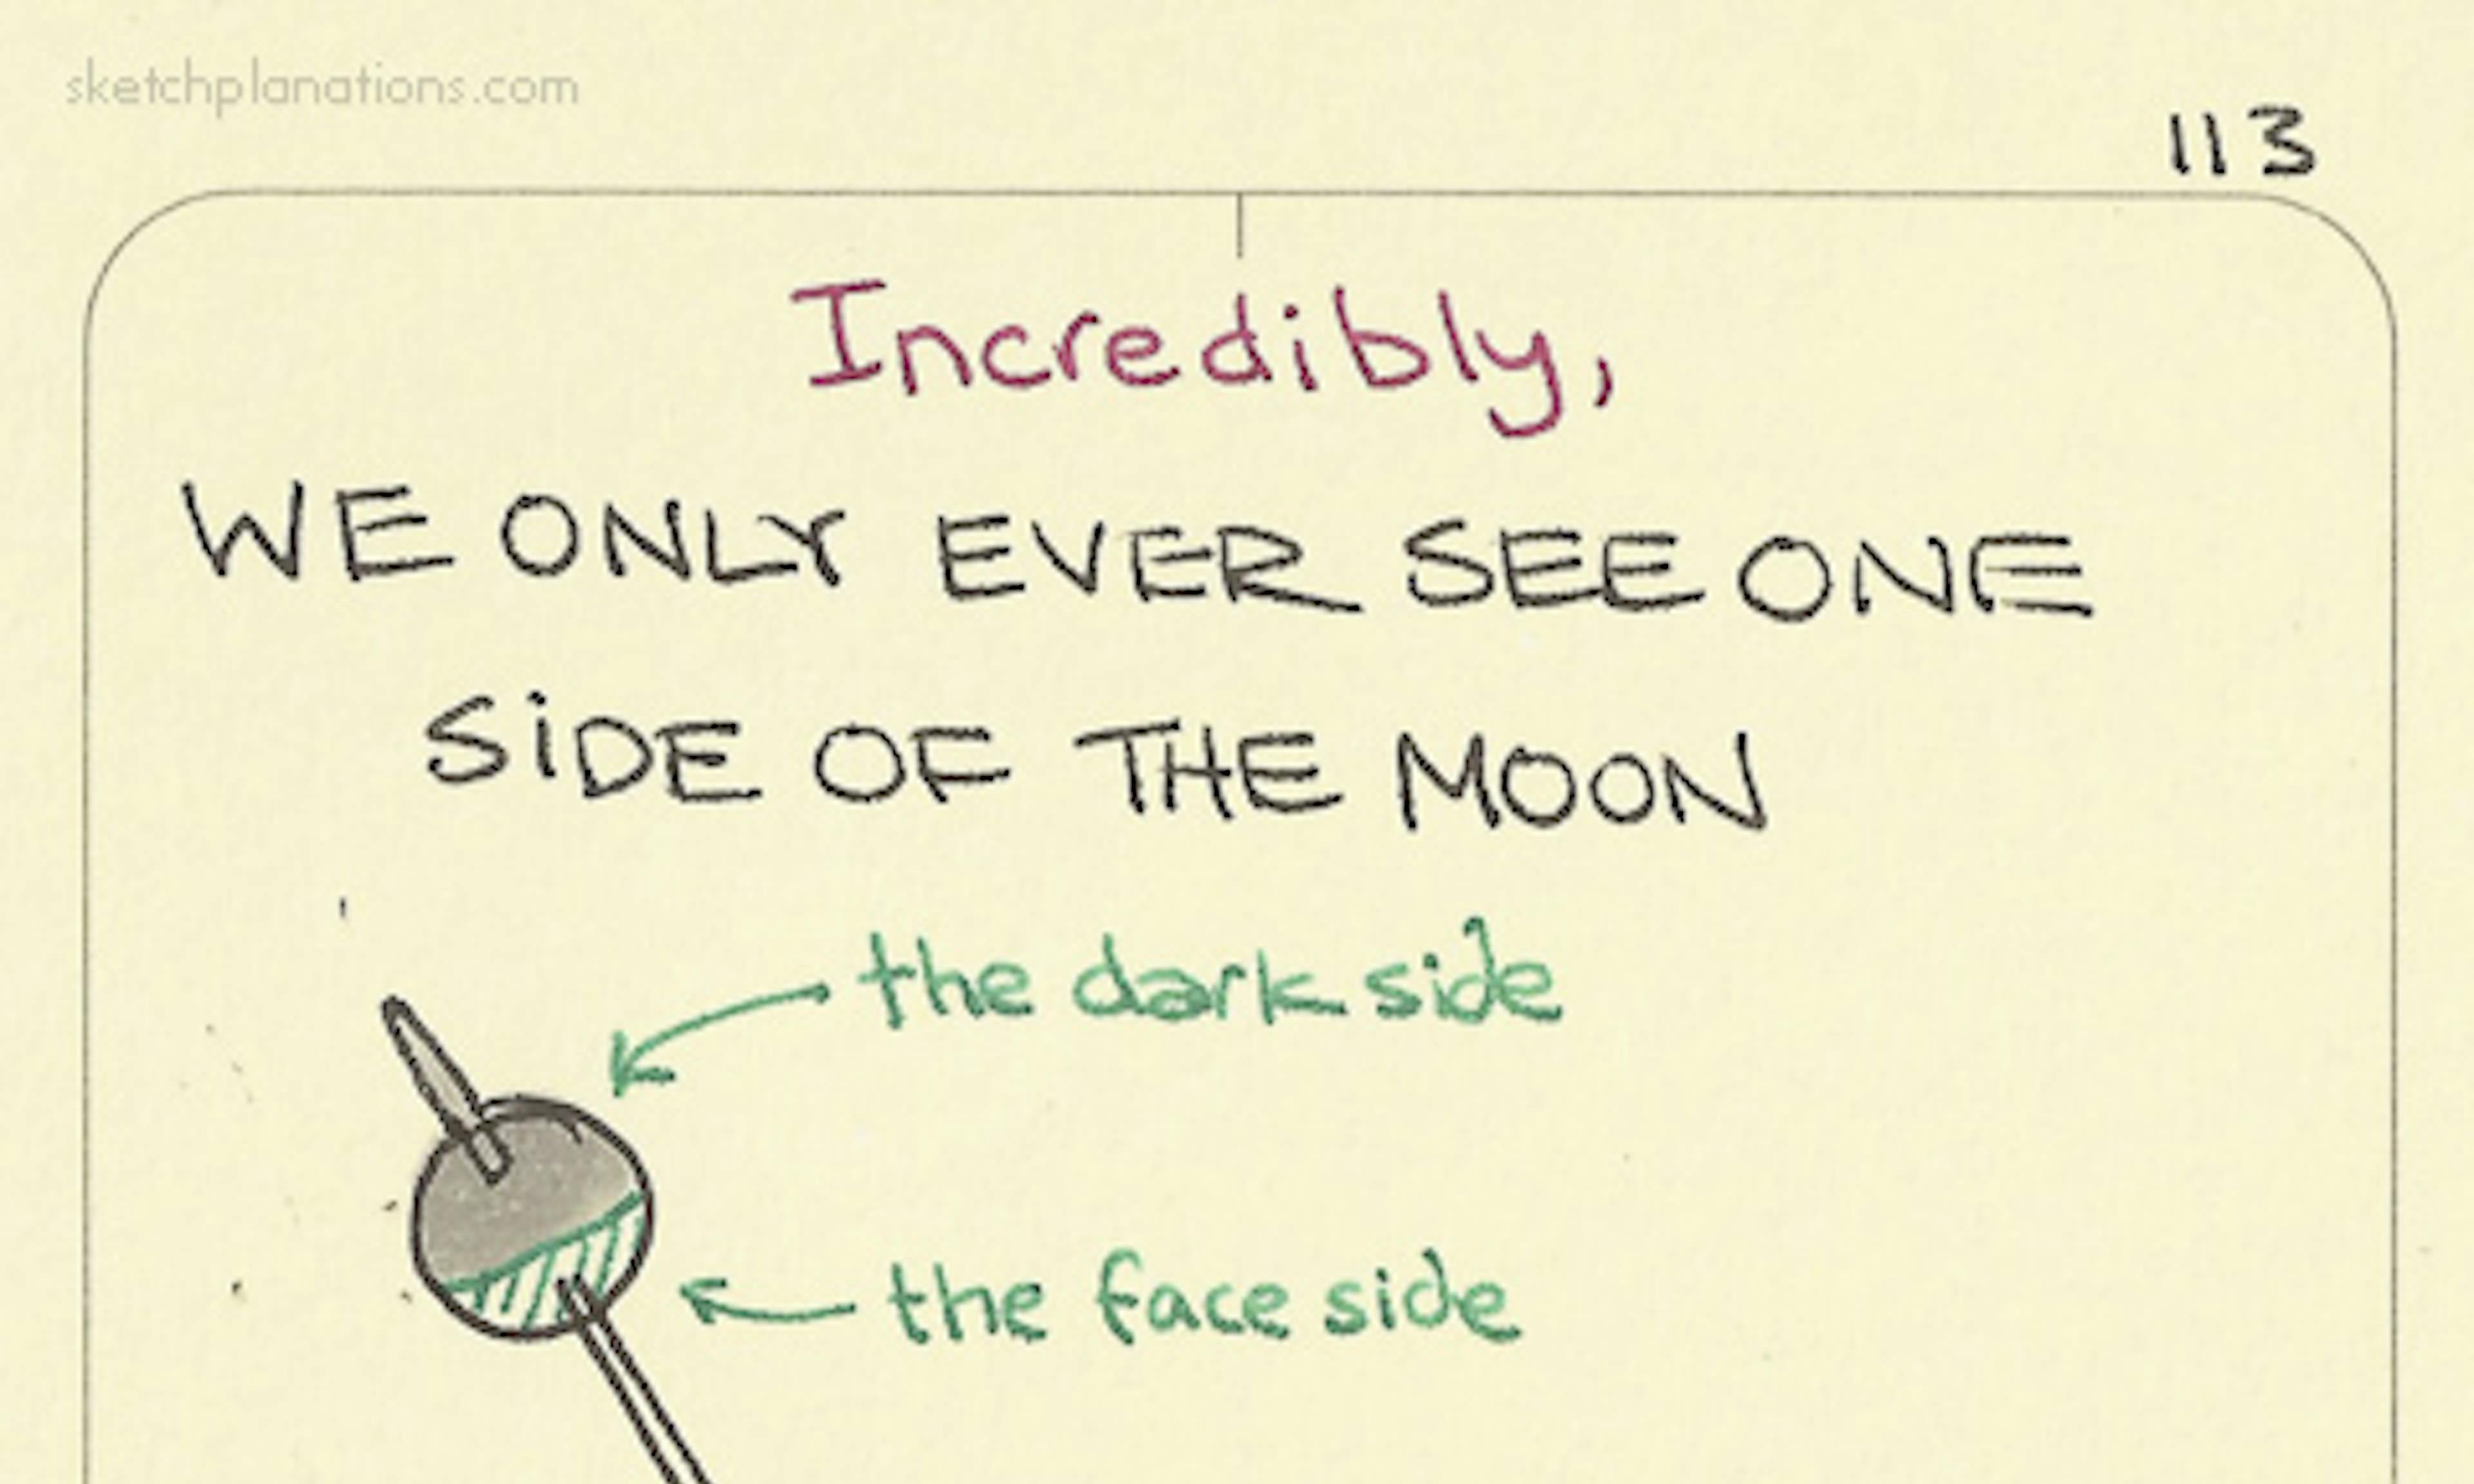 sketchplanations.com
113
Incredibly,
WE ONLY EVER SEE ONE
SiDE OF THE MOON
the dark side
the face side